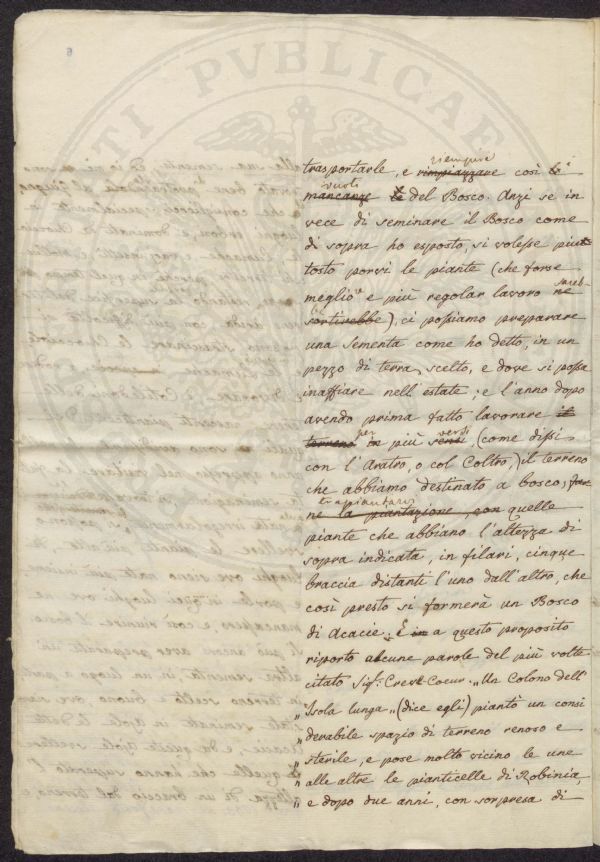 6
ATI PVBLICAE
riempire
trasportarle, e rimpiazzare così le i
vuoti
mancanze le del Bosco. Anzi se in
vece di seminare il Bosco come
di sopra ho esposto, si volesse piut
tosto porvi le piante (che forse
meglio e più regolar lavoro ne sareb-
be
sortirebbe), ci possiamo preparare
una sementa come ho detto, in un
pezzo di terra scelto, e dove si possa
inaffiare nell'estate; e l'anno dopo
avendo prima fatto lavorare il
per versi
terreno in più sensi, (come dissi
con l'Aratro, o col Coltro,) il terreno
che abbiamo destinato a bosco, far
trapiantarvi
ne la piantazione con quelle
piante che abbiano l'altezza di
sopra indicata, in filari, cinque
braccia distanti l'uno dall'altro, che
così presto si formerà un Bosco
di Acacie. E in a questo proposito
riporto alcune parole del più volte
citato Sigr. Creve-Coeur. „Un Colono dell'
„Isola lunga„ (dice egli) piantò un consi
„derabile spazio di terreno renoso e
„sterile, e pose molto vicino le une
„alle altre le pianticelle di Robinia,
„e dopo due anni, con sorpresa di